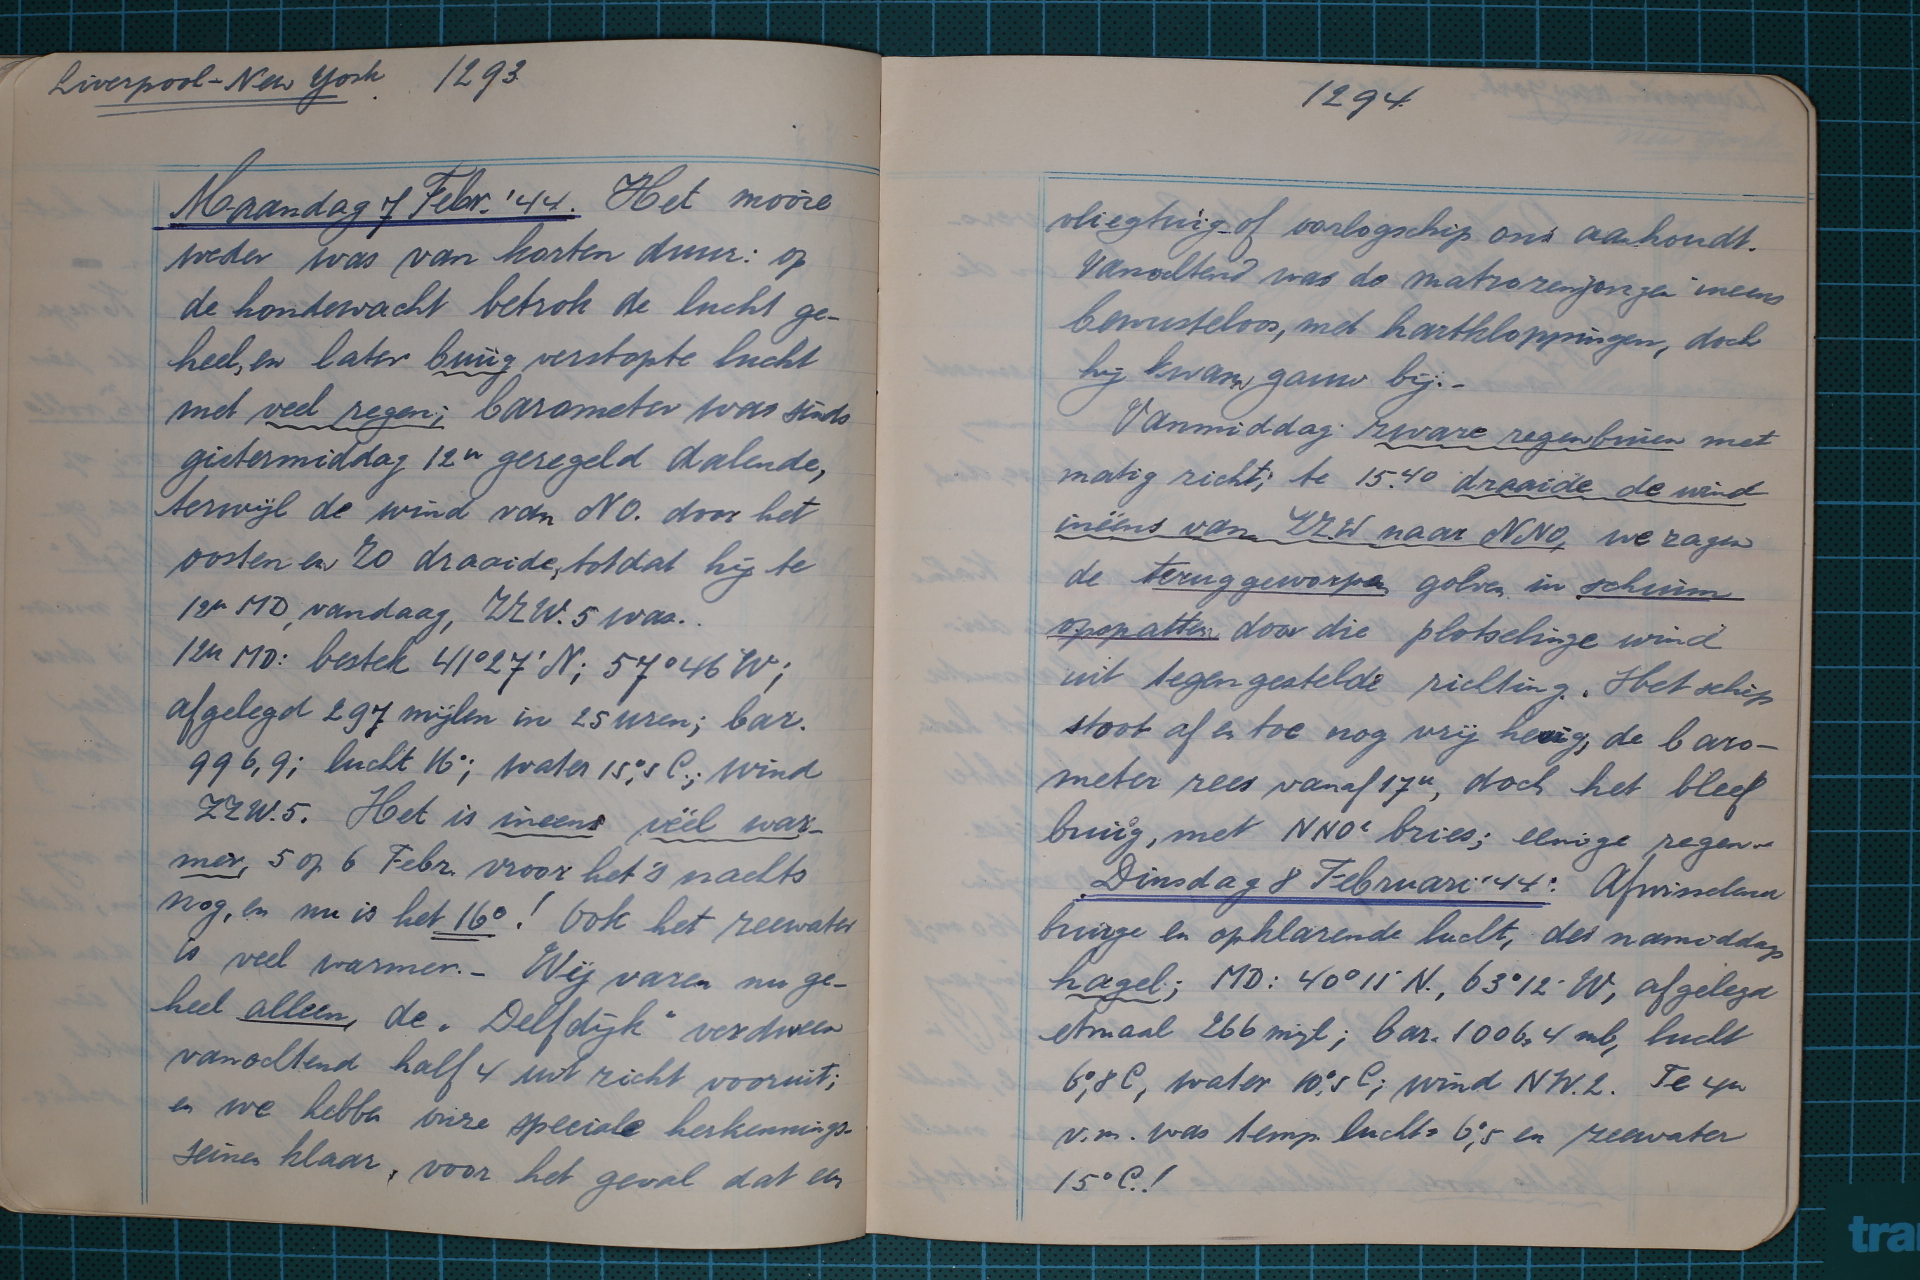 Liverpool-New York 1293
Maandag 7 Febr. '44. Het mooie
weder was van korten duur: op
de hondewacht betrok de lucht ge-
heel, en later buiig verstopte lucht
met veel regen; barometer was sinds
gistermiddag 12u geregeld dalende,
terwijl de wind van NO. door het
oosten en ZO draaide, totdat hij te
12u MD, vandaag, ZZW. 5 was.
12u MD: bestek 41°27' N; 57°46 W;
afgelegd 297 mijlen in 25 uren; bar.
996,9; lucht 16°; water 15°,5 C.; wind
ZZW. 5. Het is ineens véél war-
mer, 5 op 6 Febr. vroor het 's nachts
nog, en nu is het 16°! Ook het zeewater
is veel warmer. - Wij varen nu ge-
heel alleen, de "Delfdijk" verdween
vanochtend half 4 uit zicht vooruit;
en we hebben onze speciale herkennings-
seinen klaar, voor het geval dat een
1294
vliegtuig of oorlogschip ons aanhoudt.
Vanochtend was de matrozenjongen ineens
bewusteloos, met hartkloppingen, doch
hij kwam gauw bij. -
Vanmiddag zware regenbuien met
matig zicht; te 15.40 draaide de wind
inéens van ZZW naar NNO, we zagen
de teruggeworpen golven in schuim
opspatten door die plotselinge wind
uit tegengestelde richting. Het schip
stoot af en toe nog vrij hevig, de baro-
meter rees vanaf 17u, doch het bleef
buiig, met NNOe bries; eenige regen. -
Dinsdag 8 Februari '44: Afwisselend
buiige en opklarende lucht, des namiddags
hagel; MD: 40°11' N., 63°12' W, afgelegd
etmaal 266 mijl; bar. 1006,4 mb, lucht
6°,8 C, water 10°,5 C; wind NW. 2. Te 4u
v.m. was temp. lucht = 6°,5 en zeewater
15° C.!